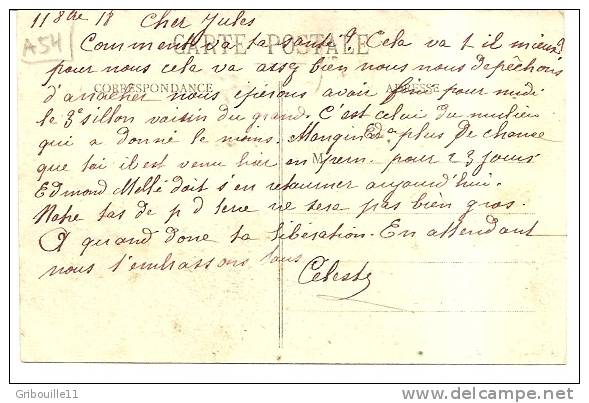 11 8bre 18 Cher Jules
A54
CARTE POSTALE
Comment va ta santé ? Cela va t il mieux ?
pour nous cela va assez bien nous nous depêchons
CORRESPONDANCE ADRESSE
d'arracher nous éperons avoir fini pour midi
le 3e sillon voisin du grand. C'est celui du milieu
qui a donné le moins. Maugin a plus de chance
que toi il est venu hier en perm. pour 23 jours
Edmond Mellé doit s'en retourner aujourd'hui.
Notre tas de p d terre ne sera pas bien gros.
A quand donc ta libération. En attendant
nous t'embrassons tous
Céleste
Gribouille11
http://www.delcampe.net